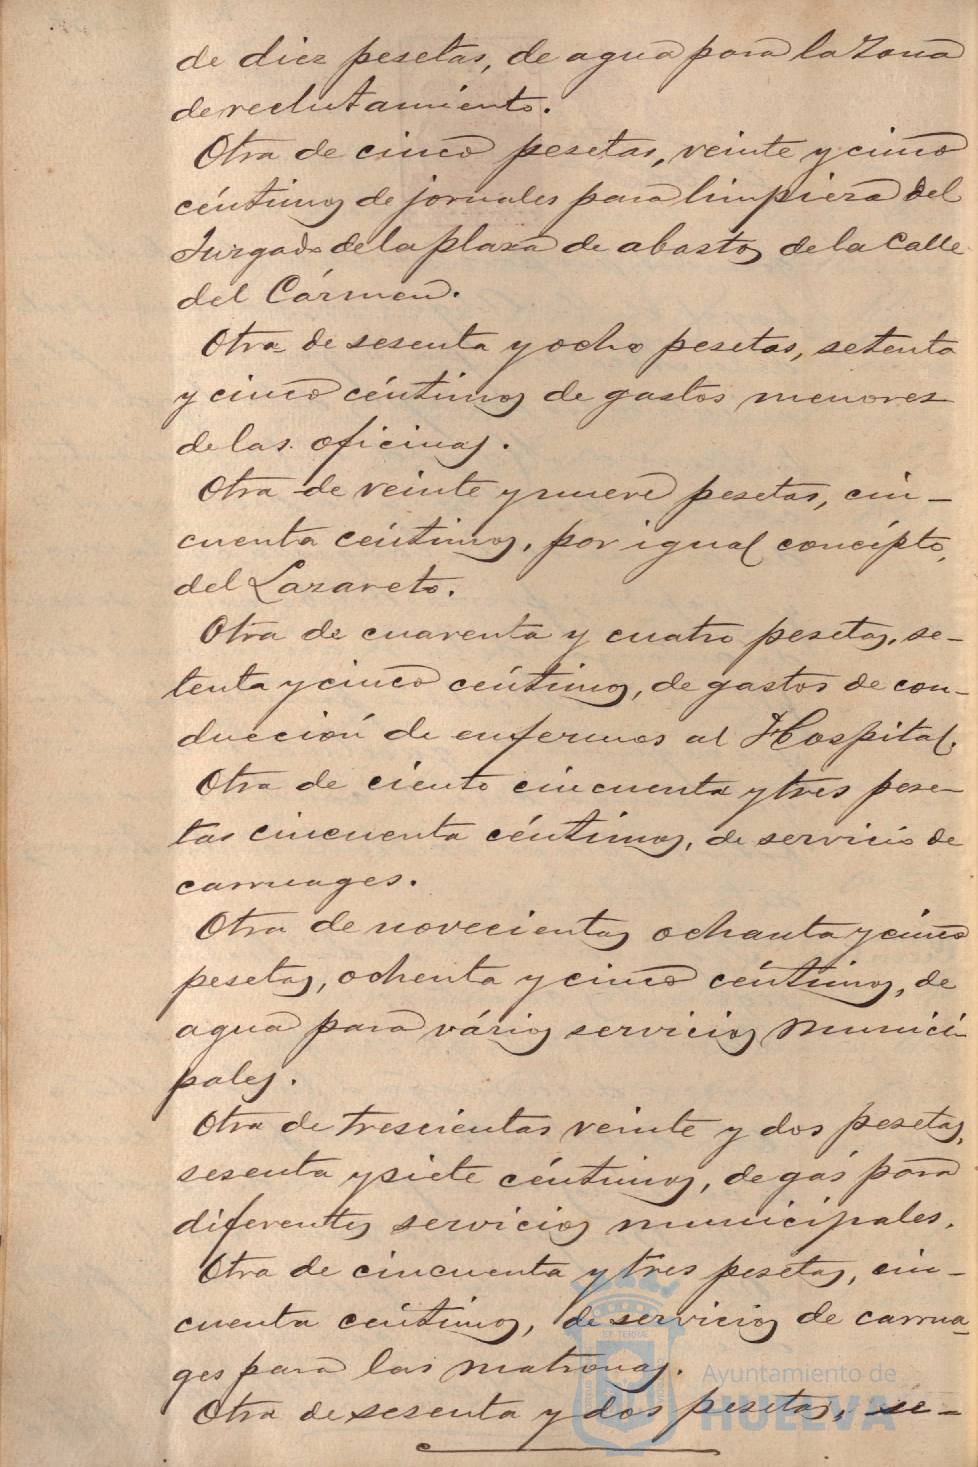 de diez pesetas, de agua para la Zona
de reclutamiento.
Otra de cinco pesetas, veinte y cinco
céntimos de jornales para limpieza del
Juzgado de la plaza de abastos de la Calle
del Cármen.
Otra de sesenta y ocho pesetas, setenta
y cinco céntimos de gastos menores
de las oficinas.
Otra de veinte y nueve pesetas, cin-
cuenta céntimos, por igual concépto,
del Lazareto.
Otra de cuarenta y cuatro pesetas, se-
tenta y cinco céntimos, de gastos de con-
ducción de enfermos al Hospital.
Otra de ciento cincuenta y tres pese-
tas cincuenta céntimos, de servicio de
carruages.
Otra de novecientas ochenta y cinco
pesetas, ochenta y cinco céntimos, de
agua para vários servicios munici-
pales.
Otra de trescientas veinte y dos pesetas,
sesenta y siete céntimos, de gás para
diferentes servicios municipales.
Otra de cincuenta y tres pesetas, cin-
cuenta céntimos, de servicios de carrua-
ges para las matronas.
Otra de sesenta y dos pesetas, se-
Ayuntamiento de
HUELVA